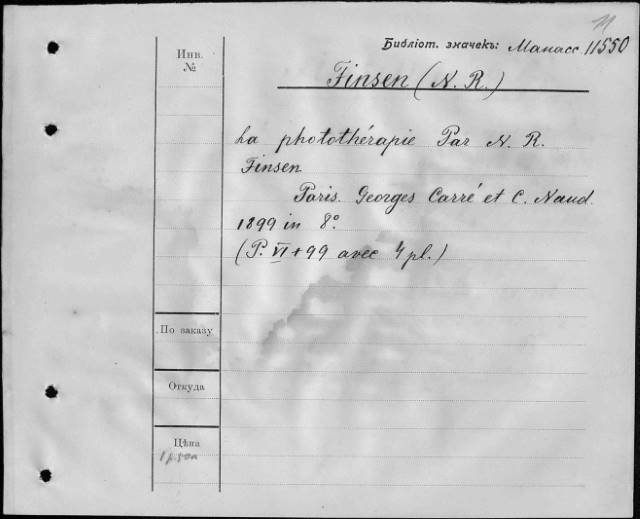 11
Библіот. значекъ: Манасс 11550
Инв.
№
Finsen (N. R.)
La photothérapie Par N. R.
Finsen
Paris. Georges Carré et C. Naud.
1899 in 8º
(P. VI + 99 avec 4 pl.)
По заказу
Откуда
Цѣна